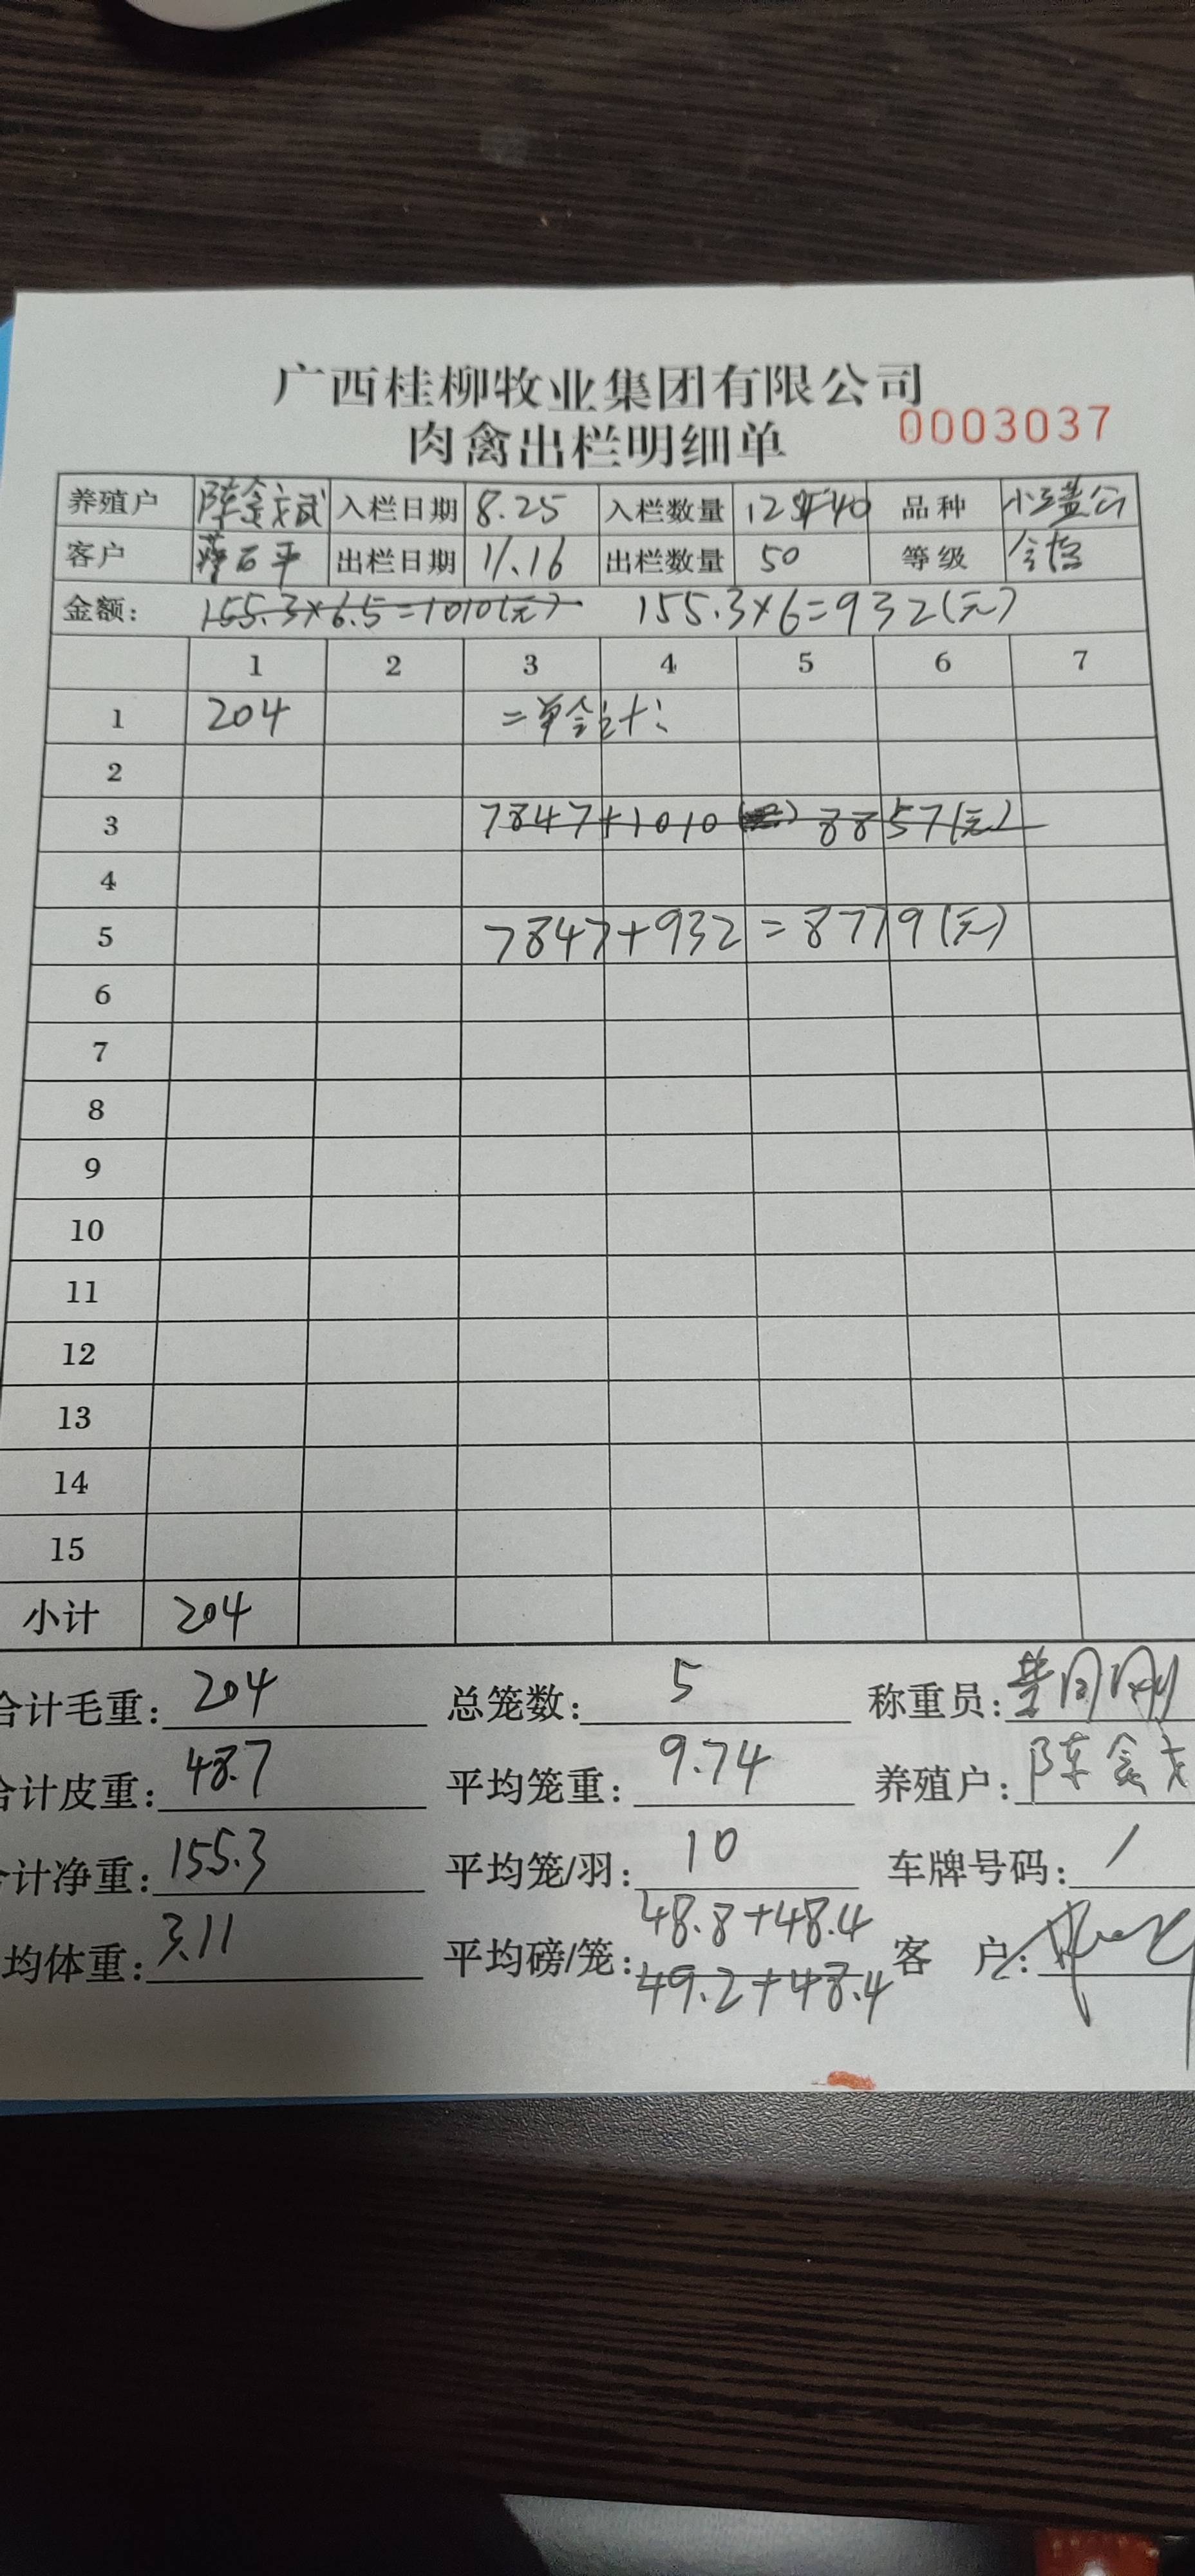 广西桂柳牧业集团有限公司
肉禽出栏明细单 0003037
养殖户 陈 入栏日期 8.25 入栏数量 品种
客户 出栏日期 11.16 出栏数量 50 等级
金额: 155.3×6.5=1010(元) 155.3×6=932(元)
1 2 3 4 5 6 7
1 204 二单合计:
2
3 7847+1010 8857(元)
4
5 7847+932=8779(元)
6
7
8
9
10
11
12
13
14
15
小计 204
合计毛重: 204 总笼数: 5 称重员:
合计皮重: 48.7 平均笼重: 9.74 养殖户: 陈
计净重: 155.3 平均笼/羽: 10 车牌号码: /
均体重: 3.11 平均磅/笼: 48.8+48.4 客 户:
49.2+48.4